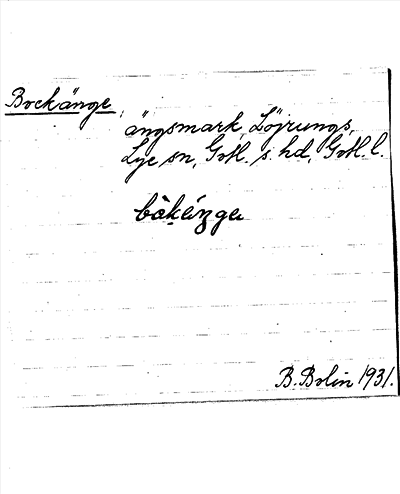 Bockänge,
ängsmark, Löjrungs,
Lye sn, Gotl. s. hd, Gotl. l.
B. Bolin 1931.